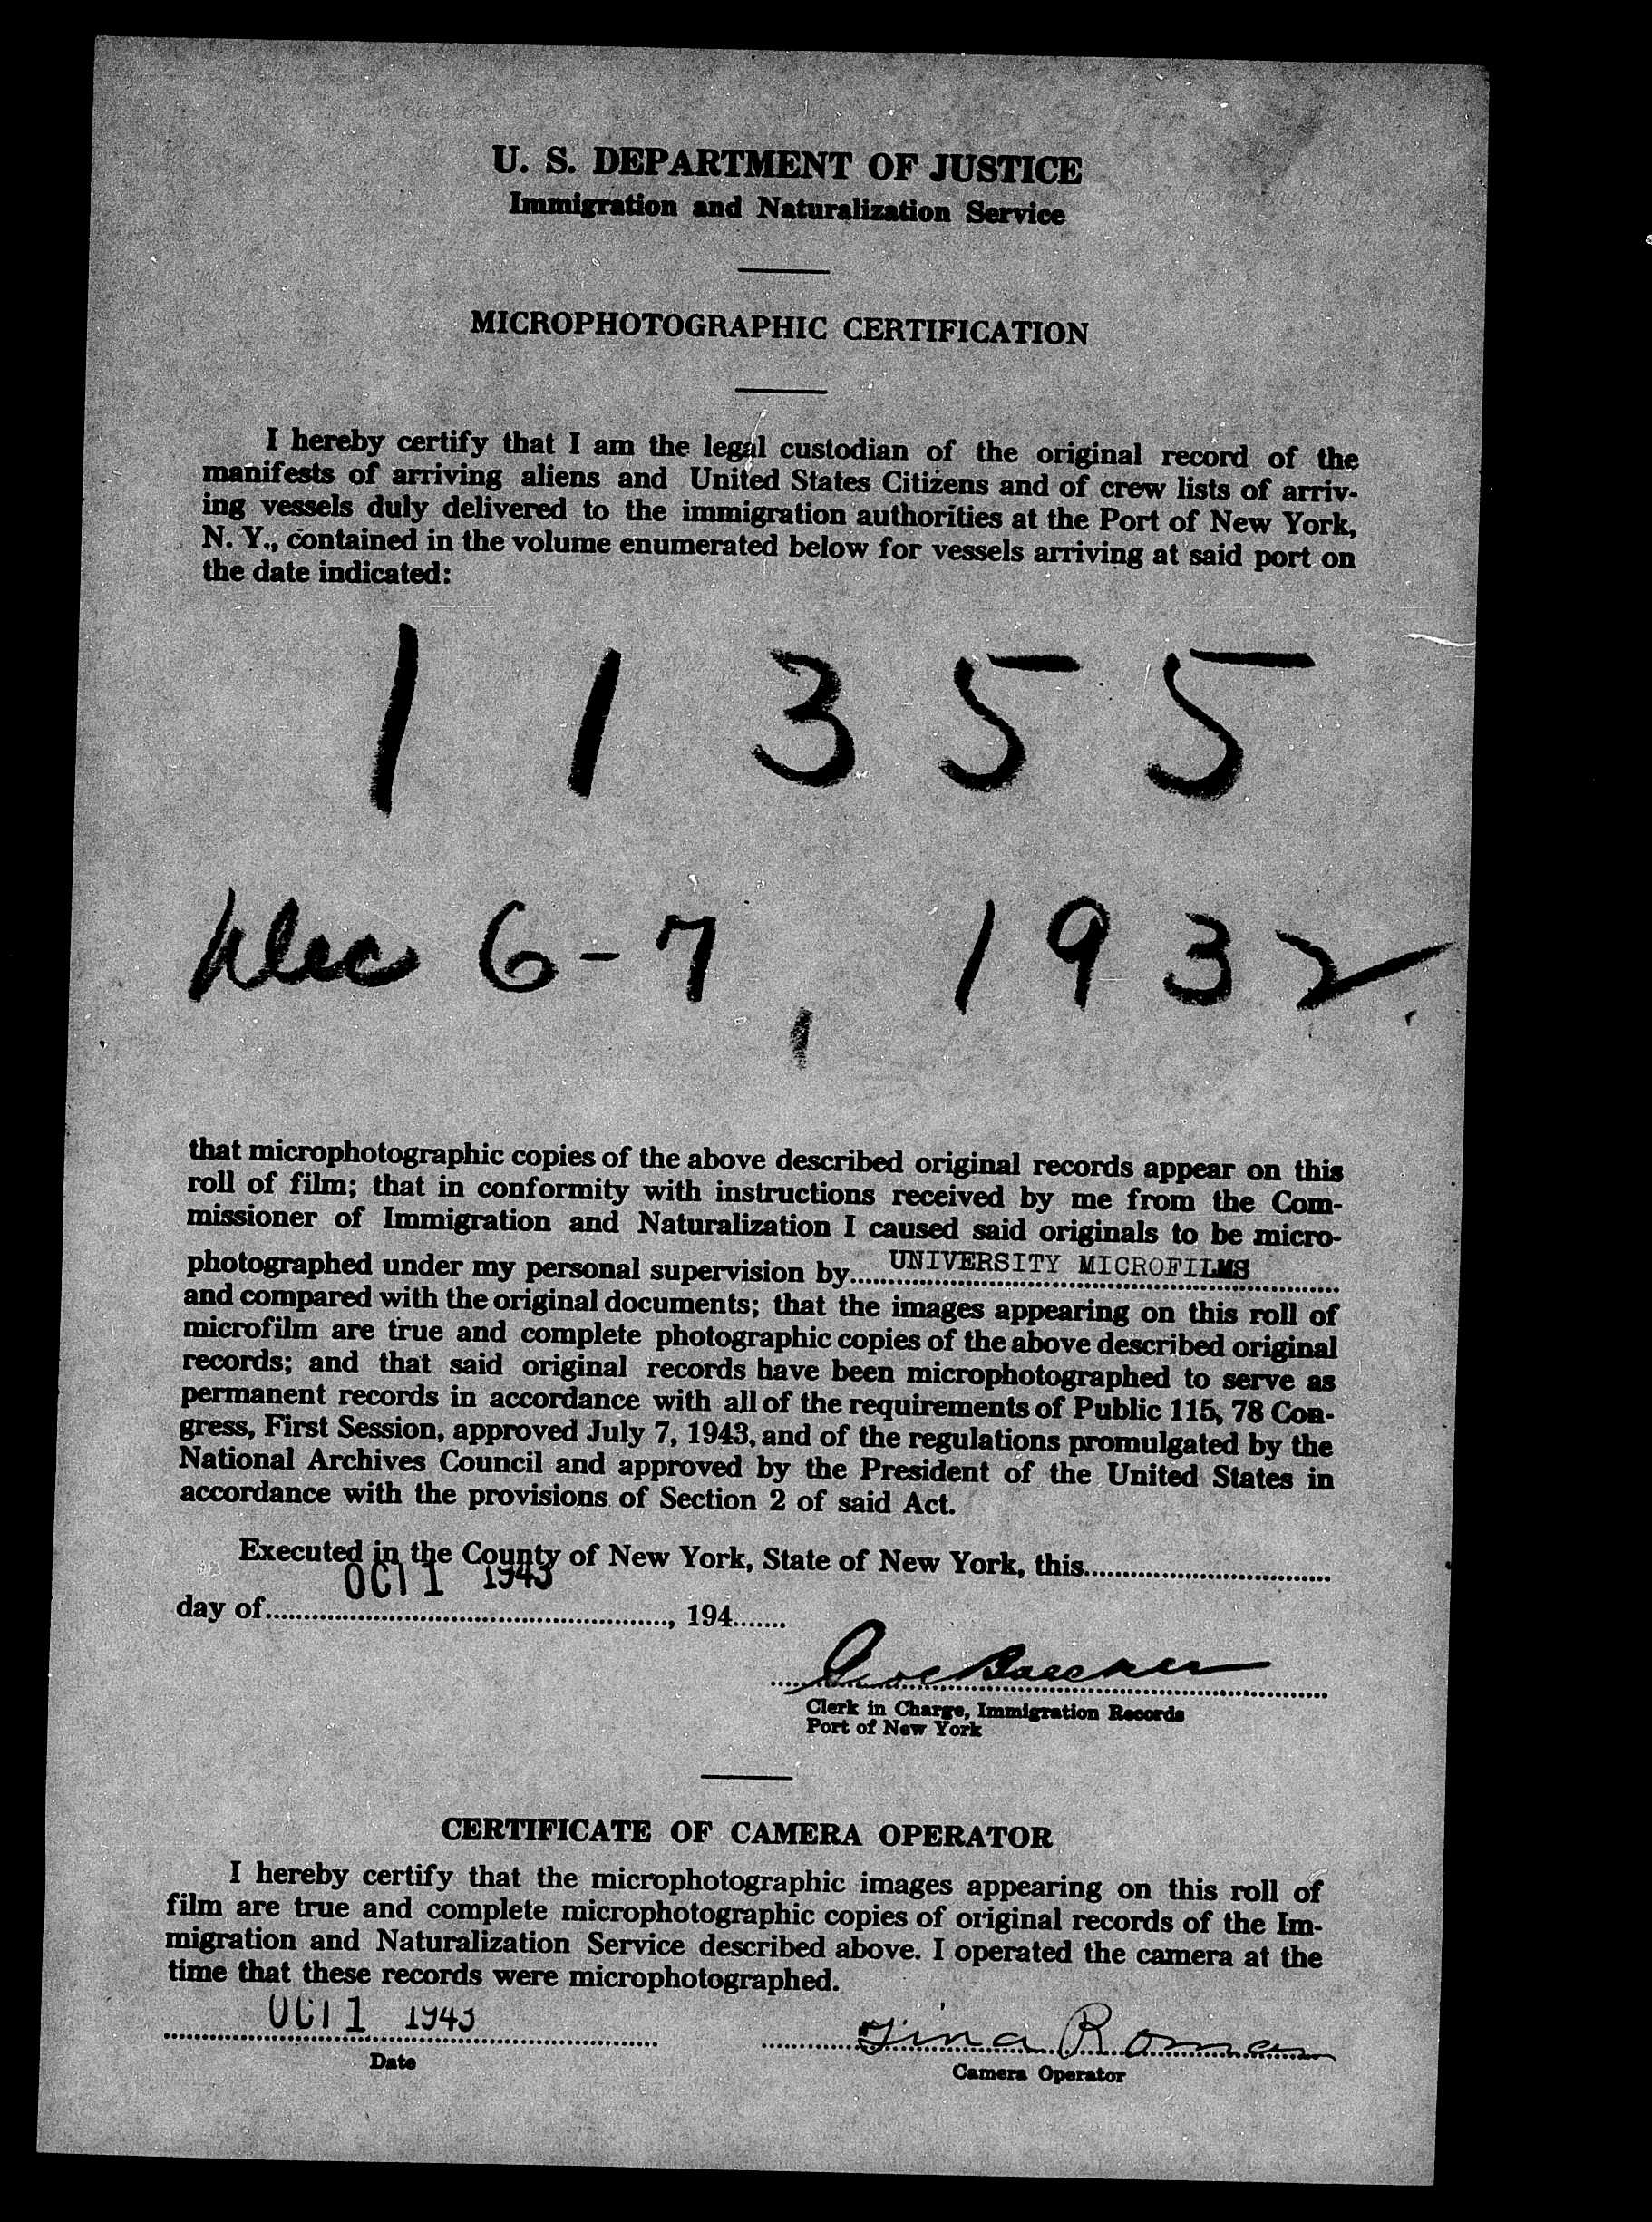 U. S. DEPARTMENT OF JUSTICE
Immigration and Naturalization Service
MICROPHOTOGRAPHIC CERTIFICATION
I hereby certify that I am the legal custodian of the original record of the
manifests of arriving aliens and United States Citizens and of crew lists of arriv-
ing vessels duly delivered to the immigration authorities at the Port of New York,
N. Y., contained in the volume enumerated below for vessels arriving at said port on
the date indicated:
11355
Dec 6-7, 1932.
that microphotographic copies of the above described original records appear on this
roll of film; that in conformity with instructions received by me from the Com-
missioner of Immigration and Naturalization I caused said originals to be micro-
photographed under my personal supervision by UNIVERSITY MICROFILMS
and compared with the original documents; that the images appearing on this roll of
microfilm are true and complete photographic copies of the above described original
records; and that said original records have been microphotographed to serve as
permanent records in accordance with all of the requirements of Public 115, 78 Con-
gress, First Session, approved July 7, 1943, and of the regulations promulgated by the
National Archives Council and approved by the President of the United States in
accordance with the provisions of Section 2 of said Act.
Executed in the County of New York, State of New York, this
OCT 1 1943
day of, 194
Clerk in Charge, Immigration Records
Port of New York
CERTIFICATE OF CAMERA OPERATOR
I hereby certify that the microphotographic images appearing on this roll of
film are true and complete microphotographic copies of original records of the Im-
migration and Naturalization Service described above. I operated the camera at the
time that these records were microphotographed.
OCT 1 1943 Tina Roman
Date
Camera Operator